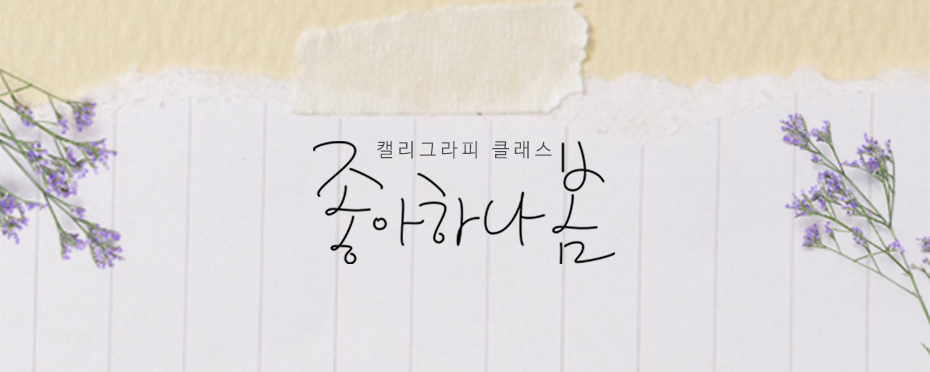 캘리그라피 클래스
좋아하나봄